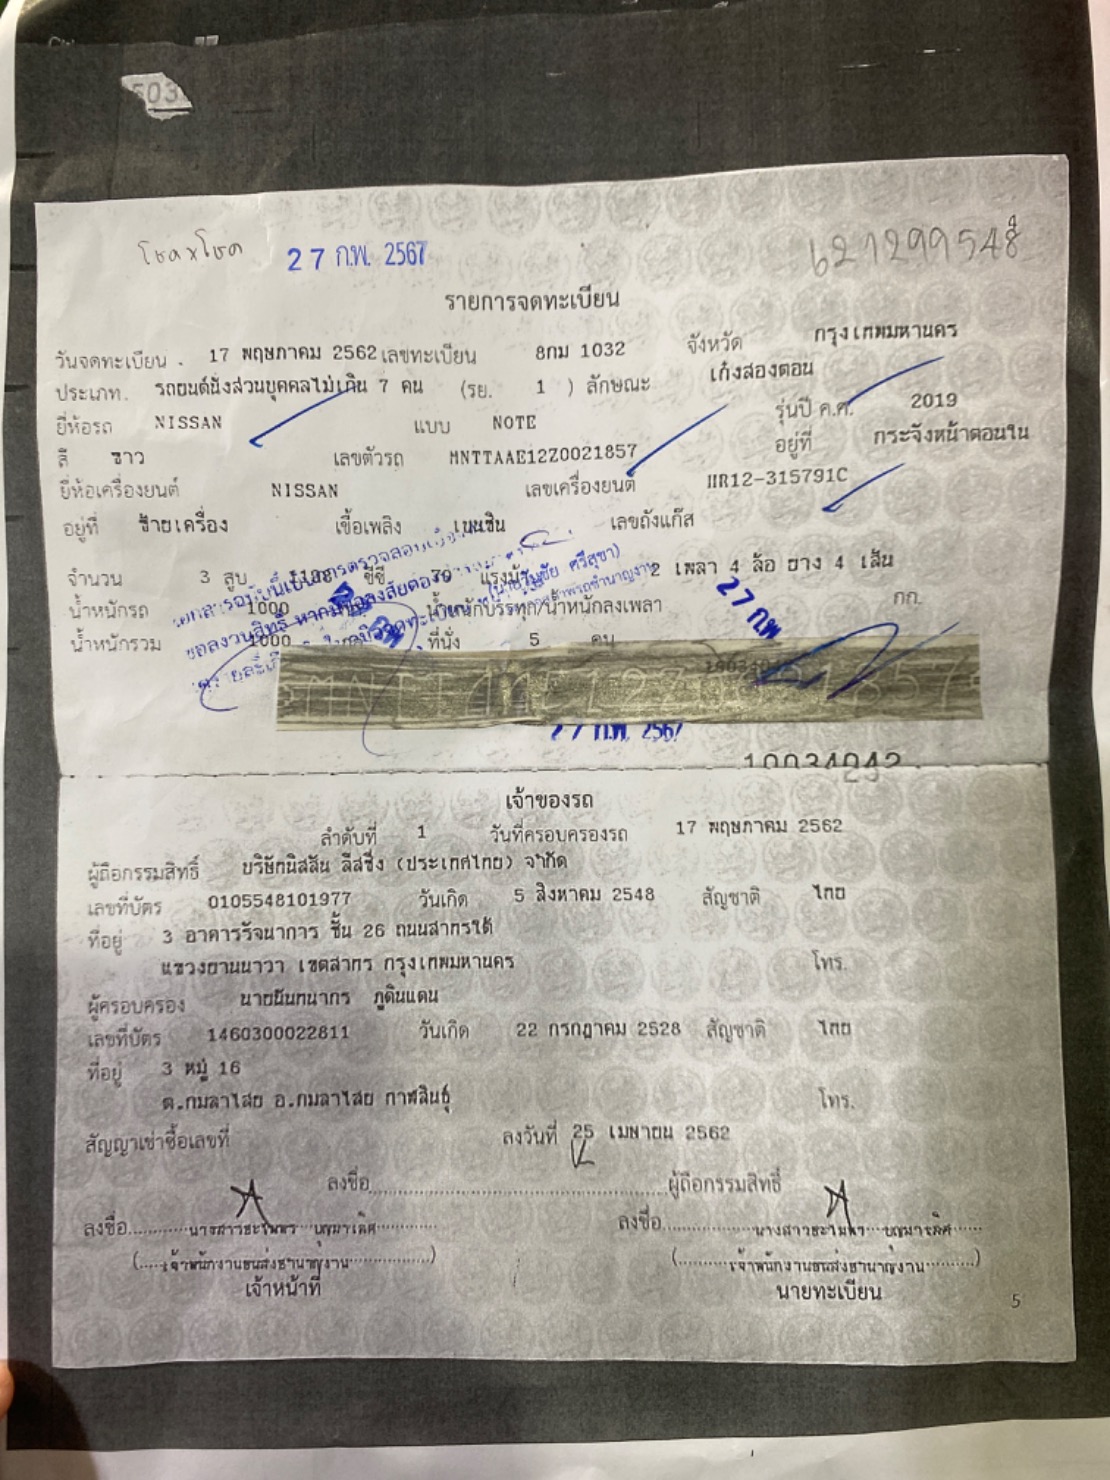 503
โชคxโชค 27 ก.พ. 2567 621299548
รายการจดทะเบียน
วันจดทะเบียน 17 พฤษภาคม 2562 เลขทะเบียน 8กม 1032 จังหวัด กรุงเทพมหานคร
ประเภท. รถยนต์นั่งส่วนบุคคลไม่เกิน 7 คน (รย. 1 ) ลักษณะ เก๋งสองตอน
ยี่ห้อรถ NISSAN แบบ NOTE รุ่นปี ค.ศ. 2019
สี ขาว เลขตัวรถ MNTTAAE12Z0021857 อยู่ที่ กระจังหน้าตอนใน
ยี่ห้อเครื่องยนต์ NISSAN เลขเครื่องยนต์ HR12-315791C
อยู่ที่ ซ้ายเครื่อง เชื้อเพลิง เบนซิน เลขถังแก๊ส
จำนวน 3 สูบ ซีซี 79 แรงม้า 2 เพลา 4 ล้อ ยาง 4 เส้น
น้ำหนักรถ 1000 น้ำหนักบรรทุก/น้ำหนักลงเพลา กก.
น้ำหนักรวม 1000 ที่นั่ง 5 คน
(นายวันชัย ศรีสุขา)
27 ก.พ.
MNTTAAE12Z0021857
27 ก.พ. 2567
10034042
เจ้าของรถ
ลำดับที่ 1 วันที่ครอบครองรถ 17 พฤษภาคม 2562
ผู้ถือกรรมสิทธิ์ บริษัทนิสสัน ลีสซิ่ง (ประเทศไทย) จำกัด
เลขที่บัตร 0105548101977 วันเกิด 5 สิงหาคม 2548 สัญชาติ ไทย
ที่อยู่ 3 อาคารรัจนาการ ชั้น 26 ถนนสาทรใต้
แขวงยานนาวา เขตสาทร กรุงเทพมหานคร โทร.
ผู้ครอบครอง นายนันทนากร ภูดินแดน
เลขที่บัตร 1460300022811 วันเกิด 22 กรกฎาคม 2528 สัญชาติ ไทย
ที่อยู่ 3 หมู่ 16
ต.กมลาไสย อ.กมลาไสย กาฬสินธุ์ โทร.
สัญญาเช่าซื้อเลขที่ ลงวันที่ 25 เมษายน 2562
ลงชื่อ ผู้ถือกรรมสิทธิ์
ลงชื่อ นางสาว ลงชื่อ นางสาว
(เจ้าพนักงานขนส่งชำนาญงาน) (เจ้าพนักงานขนส่งชำนาญงาน)
เจ้าหน้าที่ นายทะเบียน
5